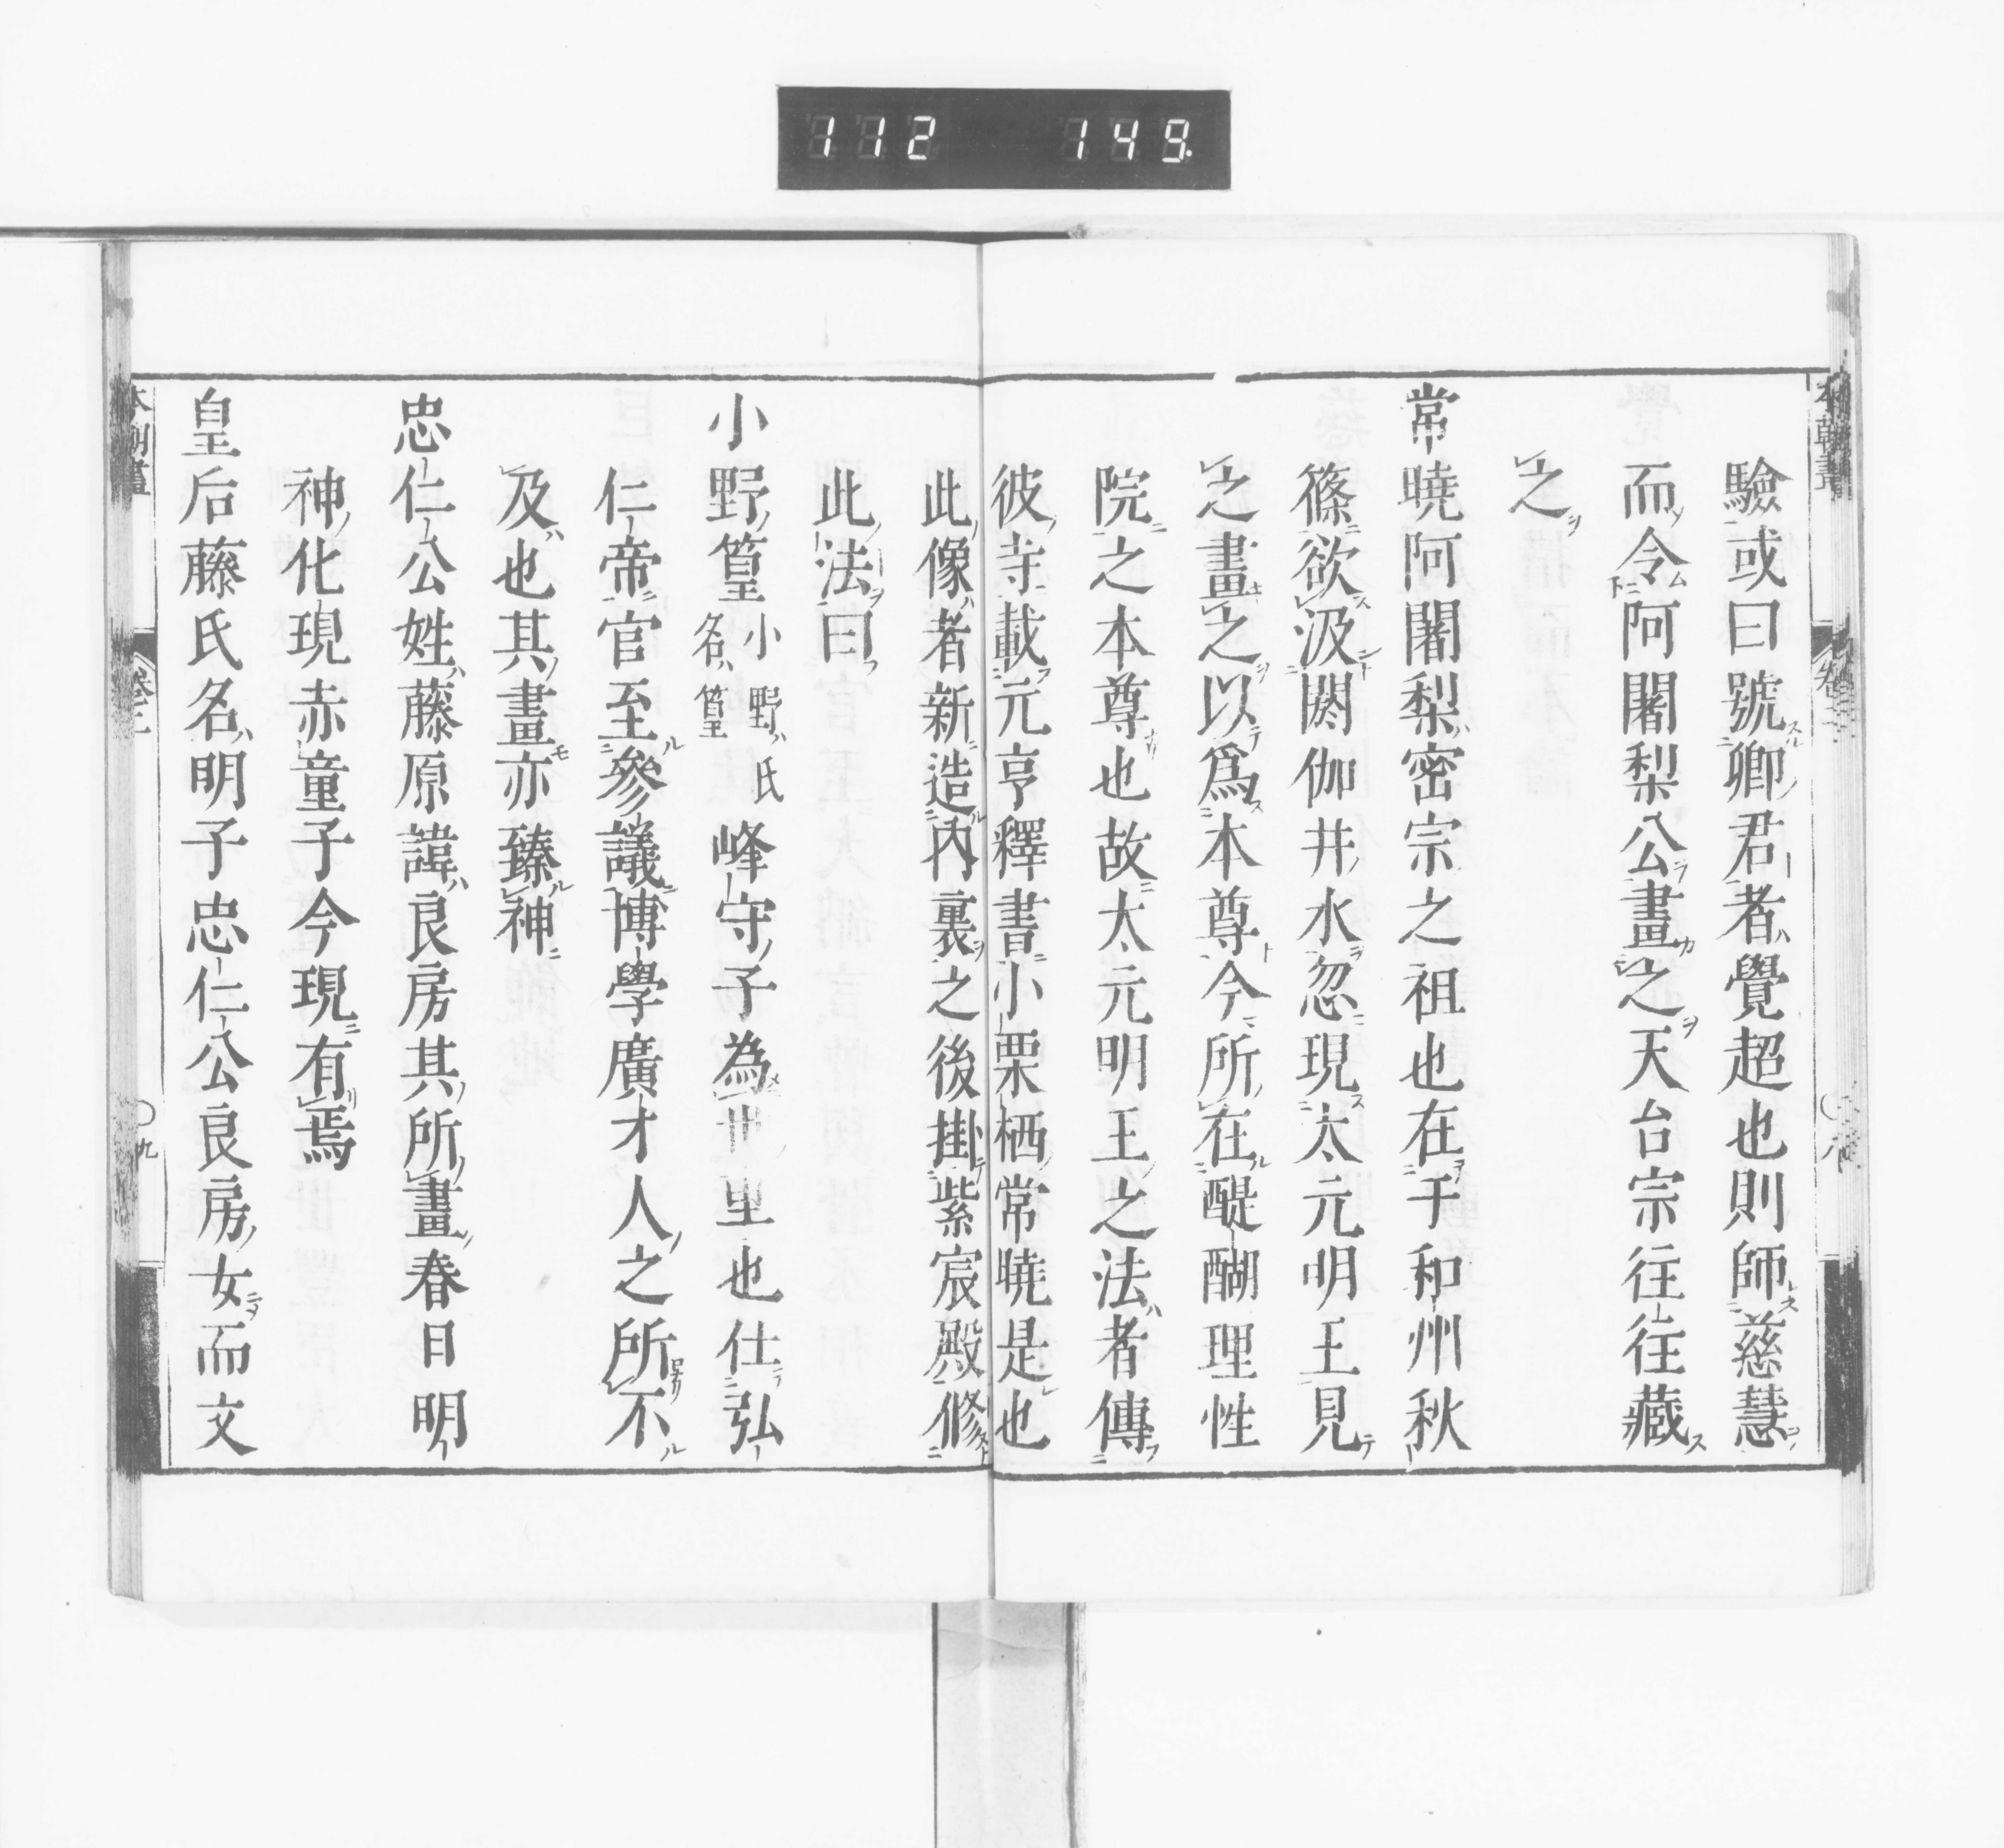 112 149.
驗或曰號卿君者覺超也則師慈慧
而令阿闍梨公畫之天台宗往往藏
之
常曉阿闍梨密宗之祖也在于和州秋
篠欲汲閼伽井水忽現太元明王見
之畫之以爲本尊今所在醍醐理性
院之本尊也故太元明王之法者傳
彼寺載元亨釋書小栗栖常曉是也
此像者新造內裏之後掛紫宸殿修
此法曰
小野篁小野氏名篁峰守子為世重也仕弘
仁帝官至參議博學廣才人之所不
及也其畫亦臻神
忠仁公姓藤原諱良房其所畫春日明
神化現赤童子今現有焉
皇后藤氏名明子忠仁公良房女而文
本朝畫
九